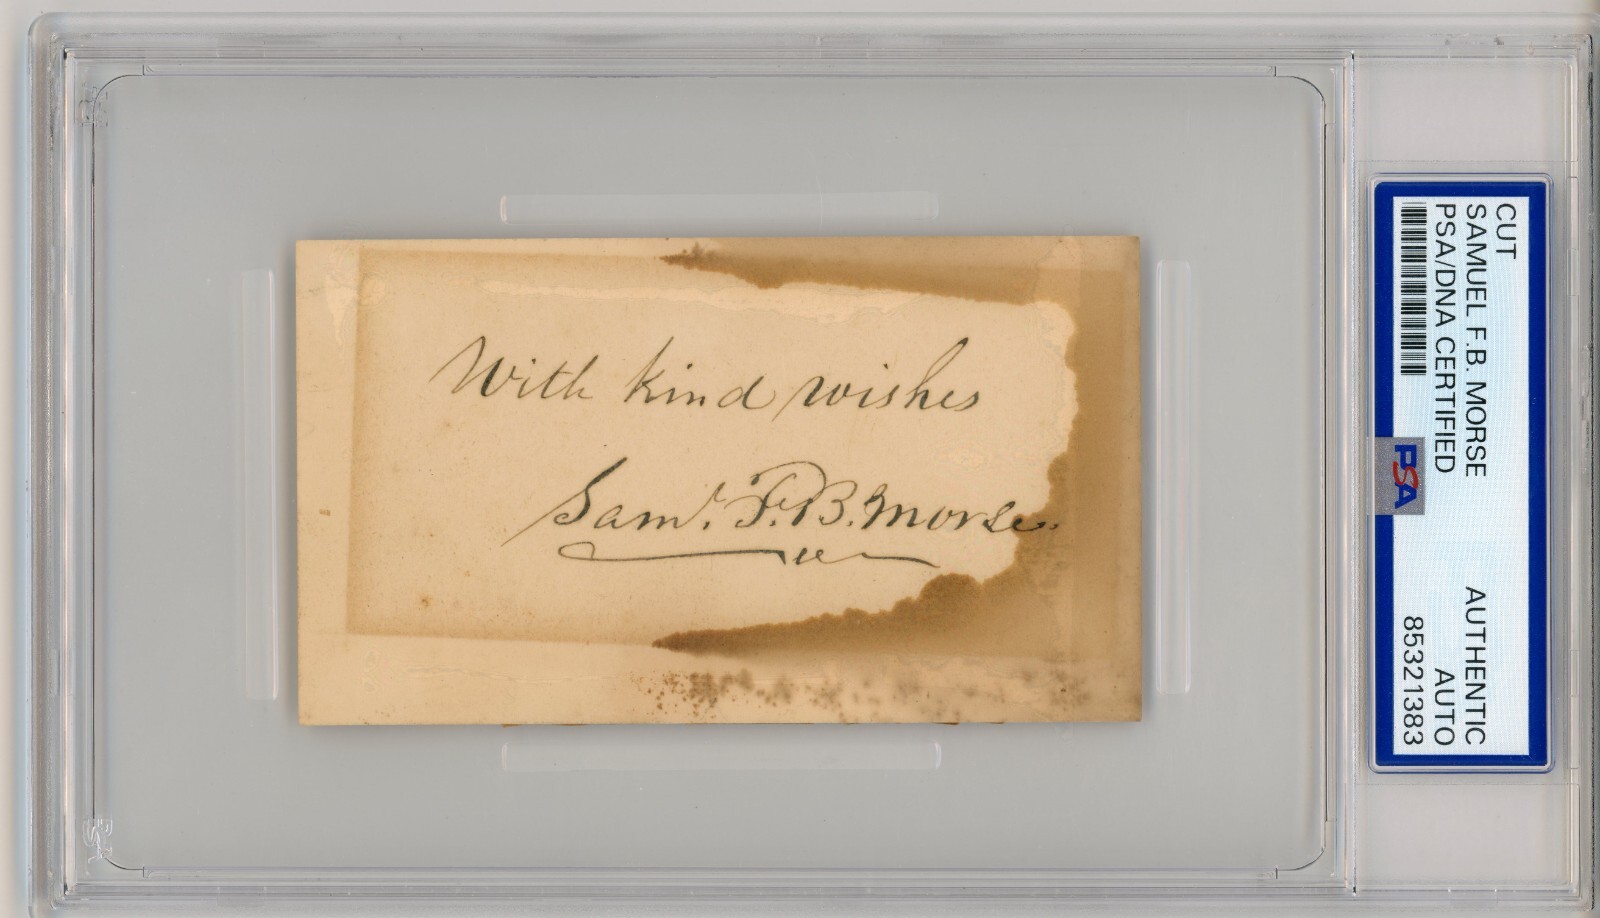 With kind wishes
Saml. F. B. Morse.
CUT
SAMUEL F.B. MORSE
PSA/DNA CERTIFIED
AUTHENTIC
AUTO
85321383
PSA